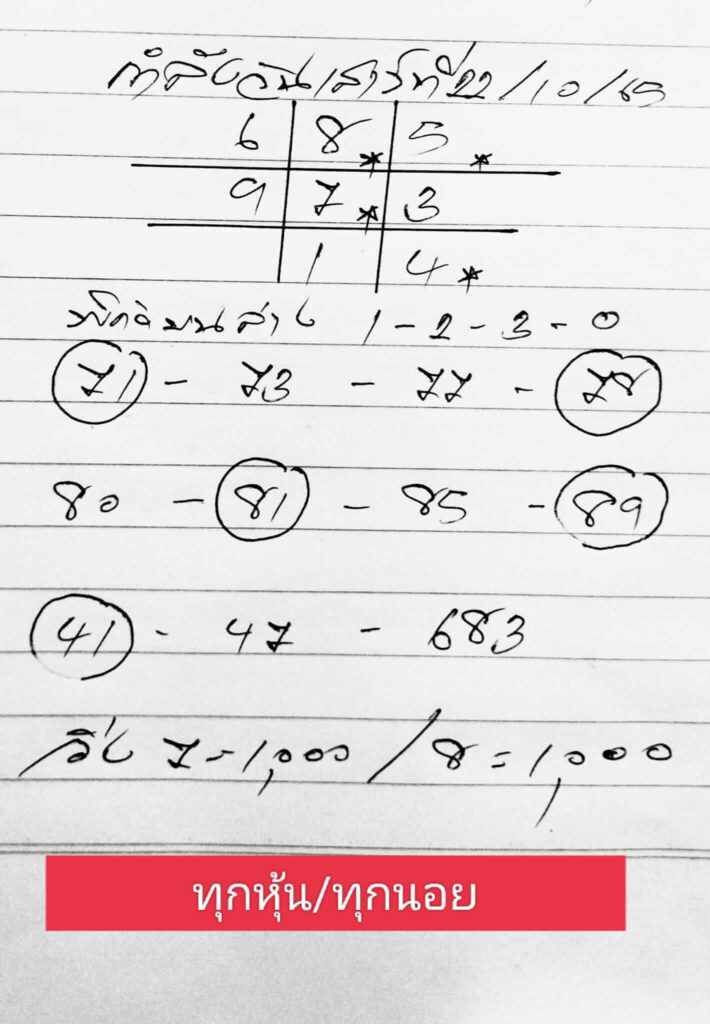 กำลังวันเสาร์ที่ 22/10/65
6 8* 5*
9 7* 3
1 4*
ล่าง 1-2-3-0
71 - 73 - 77 - 78
80 - 81 - 85 - 89
41 - 47 - 683
วิ่ง 7=1,000 / 8=1,000
ทุกหุ้น/ทุกนอย